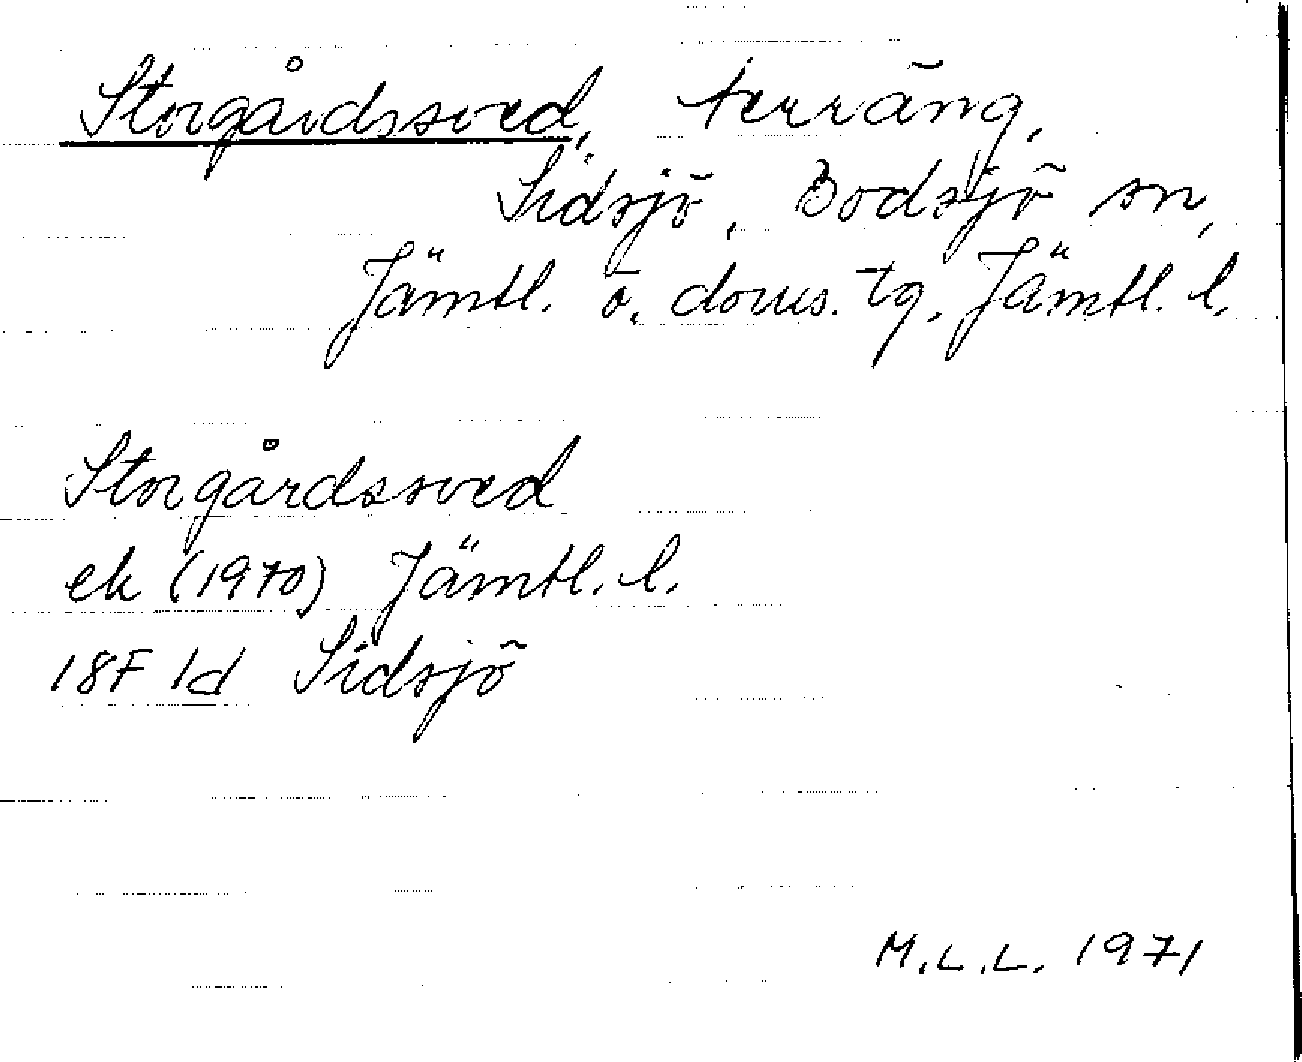 Storgårdssved, terräng,
Sidsjö, Bodsjö sn,
Jämtl. ö. doms. tg. Jämtl. l.
Storgårdssved
ek (1970) Jämtl. l.
18F 1d Sidsjö
M.L.L. 1971